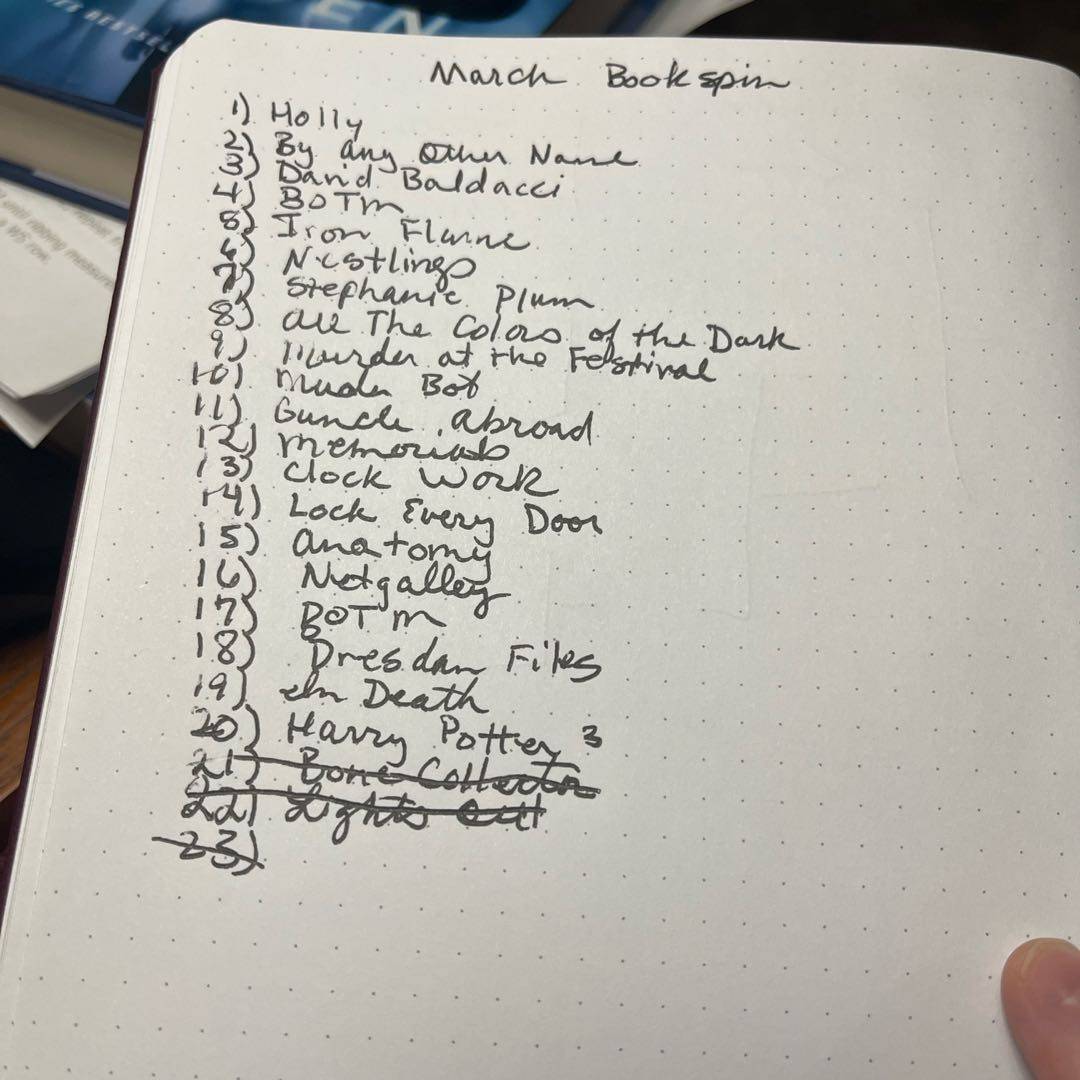 EN
March Bookspin
1) Holly
2) By any Other Name
3) David Baldacci
4) BOTM
5) Iron Flame
6) Nestlings
7) Stephanie Plum
8) All The Colors of the Dark
9) Murder at the Festival
10) Murder Bot
11) Guncle Abroad
12) Memorials
13) Clock Work
14) Lock Every Door
15) Anatomy
16) Netgalley
17) BOTM
18) Dresdan Files
19) In Death
20) Harry Potter 3
21) Bone Collector
22) Lights Out
23)